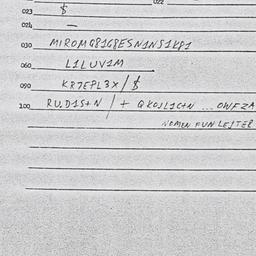 022
023 $
024 —
030 MIROMG81G8ESN1NS1KP1
060 L1LUV1M
090 KR7EPL3X/$
100 RU.D1S+N /+ QKOJL1C+N ... OWFZA
NOMEN FUN LEJTER